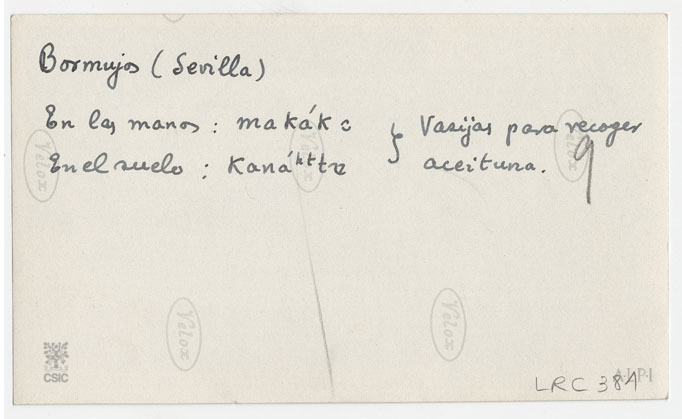 Bormujos (Sevilla)
En las manos : makákɔ } Vasijas para recoger
En el suelo : Kanáᵏᵗta aceituna. 9
Velox
Velox
Velox
Velox
Velox
CSIC
A·L·P·I
LRC 384